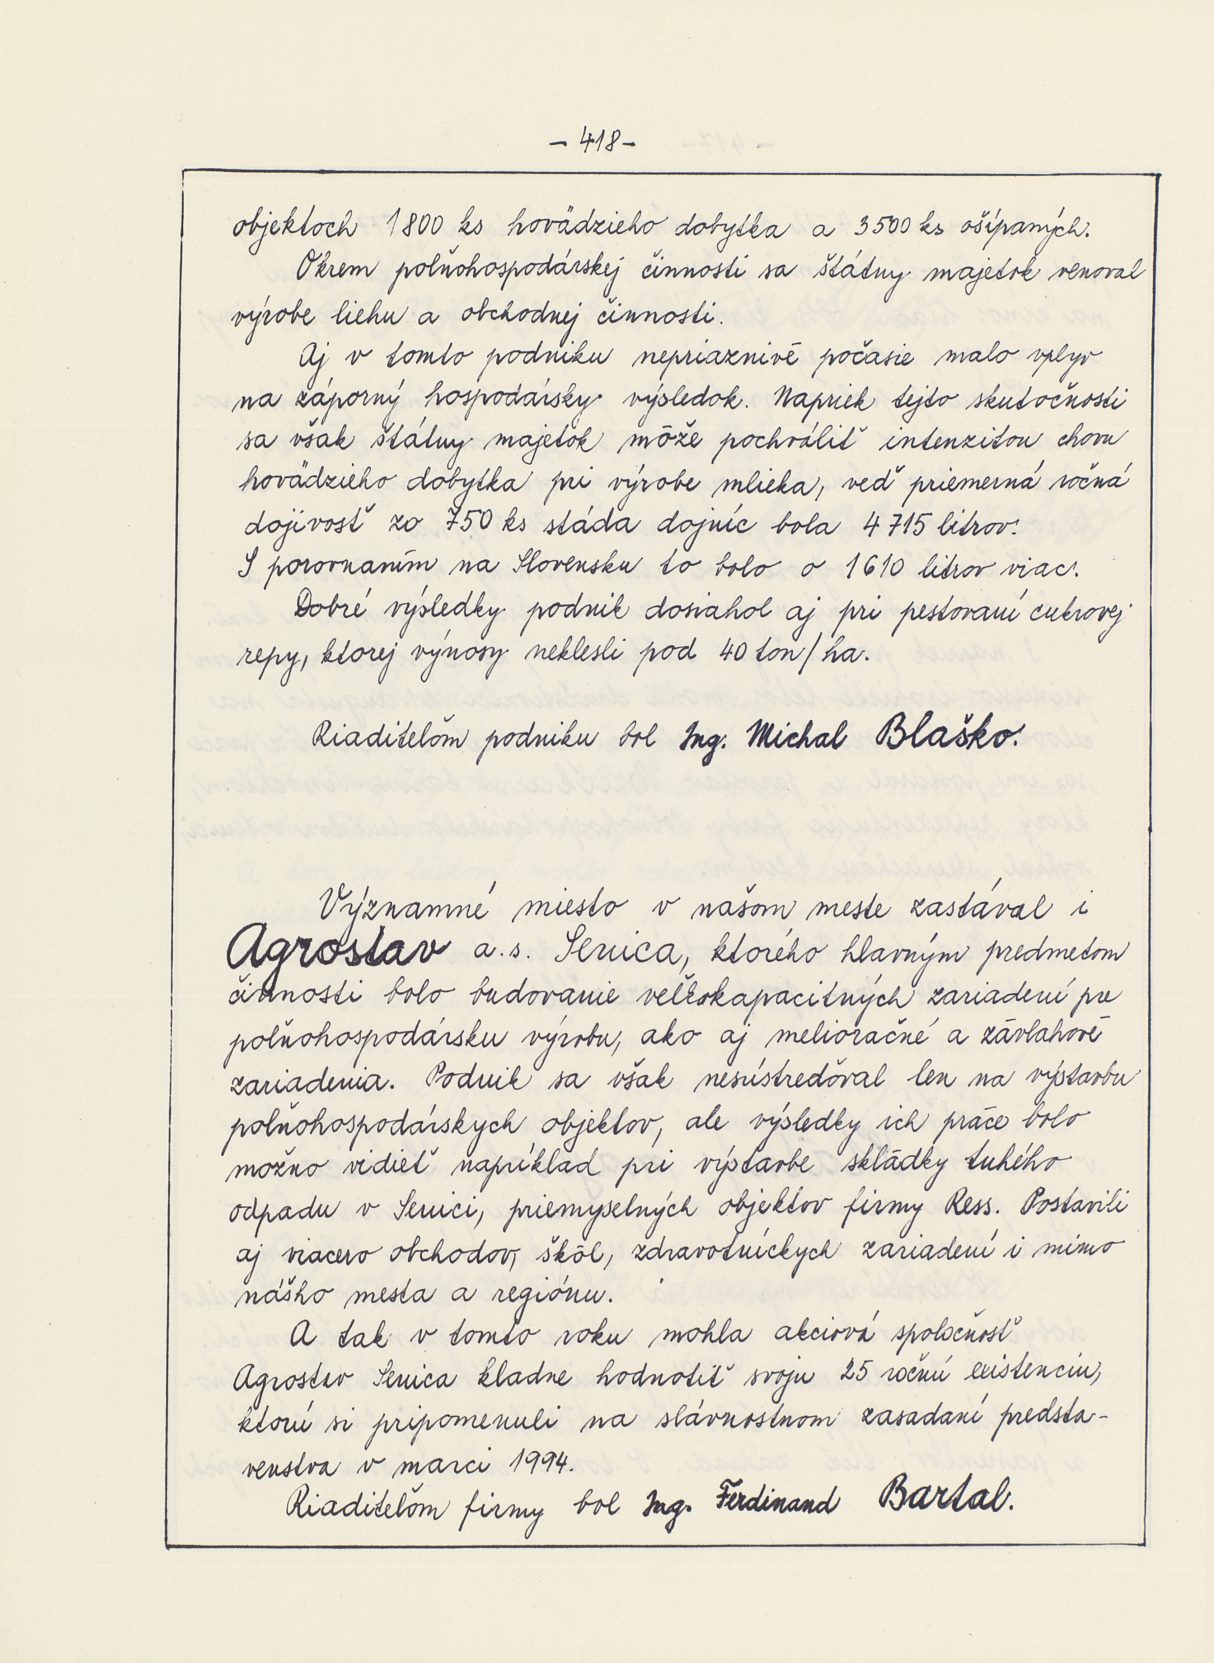 - 418 -
objektoch 1800 ks hovädzieho dobytka a 3500 ks ošípaných.
Okrem poľnohospodárskej činnosti sa štátny majetok venoval
výrobe liehu a obchodnej činnosti.
Aj v tomto podniku nepriaznivé počasie malo vplyv
na záporný hospodársky výsledok. Napriek tejto skutočnosti
sa však štátny majetok môže pochváliť intenzitou chovu
hovädzieho dobytka pri výrobe mlieka, veď priemerná ročná
dojivosť zo 750 ks stáda dojníc bola 4 715 litrov.
S porovnaním na Slovensku to bolo o 1610 litrov viac.
Dobré výsledky podnik dosiahol aj pri pestovaní cukrovej
repy, ktorej výnosy neklesli pod 40 ton/ha.
Riaditeľom podniku bol Ing. Michal Blaško.
Významné miesto v našom meste zastával i
Agrostav a.s. Senica, ktorého hlavným predmetom
činnosti bolo budovanie veľkokapacitných zariadení pre
poľnohospodársku výrobu, ako aj melioračné a závlahové
zariadenia. Podnik sa však nesústreďoval len na výstavbu
poľnohospodárskych objektov, ale výsledky ich práce bolo
možno vidieť napríklad pri výstavbe skládky tuhého
odpadu v Senici, priemyselných objektov firmy Ress. Postavili
aj viacero obchodov, škôl, zdravotníckych zariadení i mimo
nášho mesta a regiónu.
A tak v tomto roku mohla akciová spoločnosť
Agrostav Senica kladne hodnotiť svoju 25 ročnú existenciu,
ktorú si pripomenuli na slávnostnom zasadaní predsta-
venstva v marci 1994.
Riaditeľom firmy bol Ing. Ferdinand Bartal.